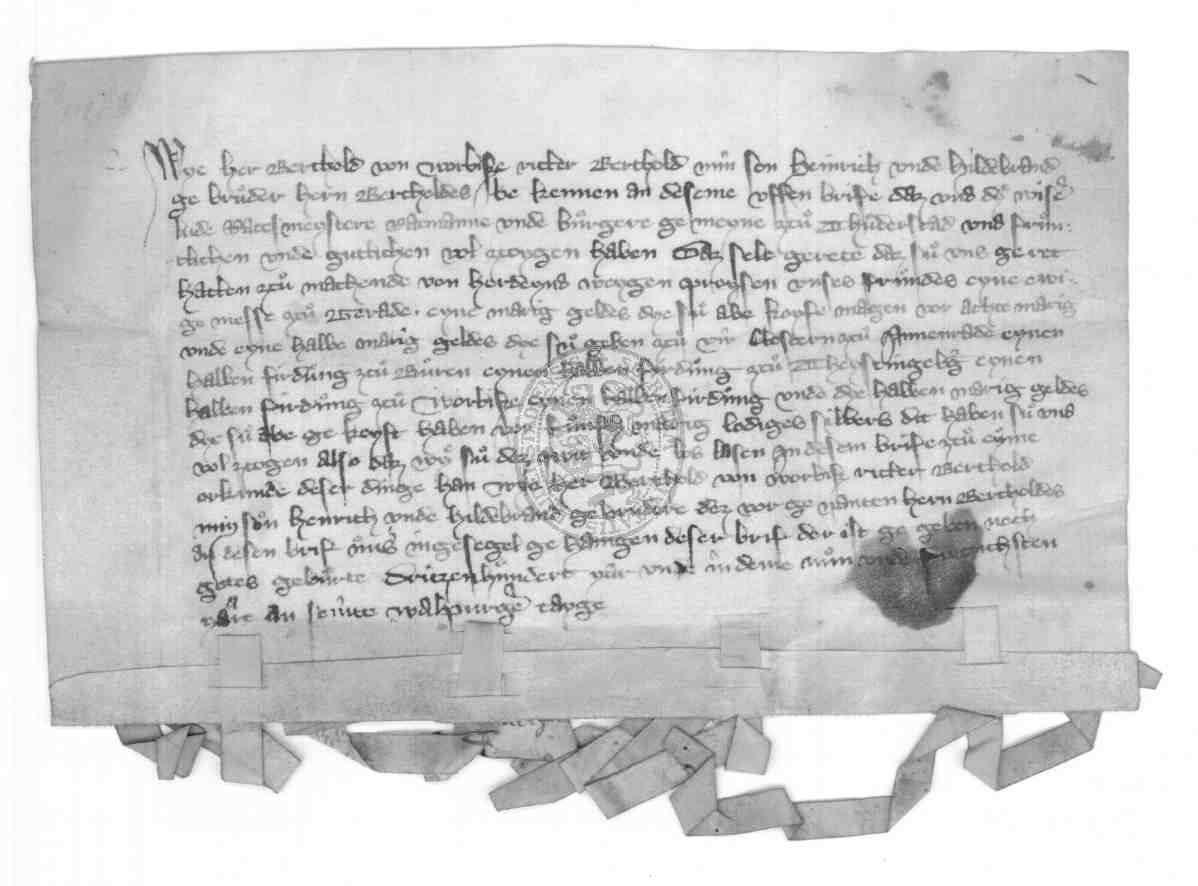 Wye her Berthold von Worbize ritter Berthold min son Heinrich unde Hildebrand
ge bruder hern Bertholdes, be kennen an deseme uffen brife daz uns de wise
lude Ratesmeystere Ratmanne unde burgere ge meyne zcu Thuderstad uns frun-
tlichen unde gutlichen vol zcogen haben Daz selt gerete daz su uns ge ret
hatten zcu machende von weygen unses frundes eyne ewi-
ge messe zcu Gerade. eyne marig geldes dye su abe koyfe magen vor achte marig
unde eyne halbe marig geldes dye su geben zcu vir Clostern zcu Annenrade eynen
halben firdung zcu Buren eynen halben firdung zcu Theystingeb'g eynen
halben firdung zcu Worbize eynen halben firdung unde dye halben marig geldes
dye su abe ge koyft haben vor marig lodiges silbers dit haben su uns
vol zcogen also daz wy su daz quit unde los lasen an desem brife zcu eyme
orkunde deser dinge han wye her Berthold von Worbize ritter Berthold
min son Henrich unde Hildebrand gebrudere daz vor ge nanten hern Bertholdes
desen brif ingesegel ge hangen deser brif der ist ge geben noch
gotes geburte dritzenhundert yar unde in deme nun unde
yare an sente Walpurge tayge